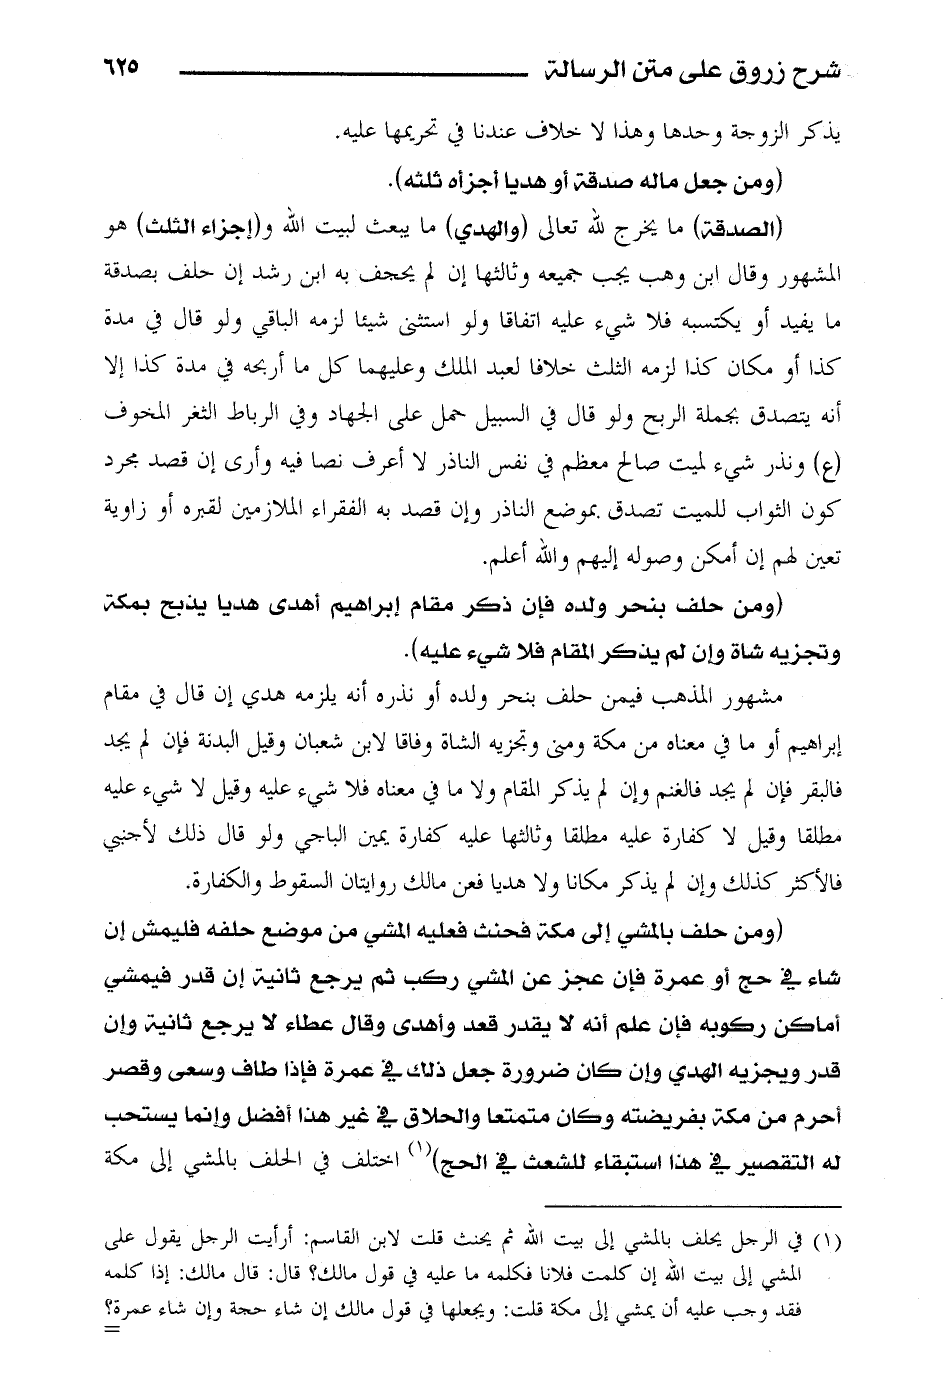 شرح زروق على متن الرسالة ٦٢٥
يذكر الزوجة وحدها وهذا لا خلاف عندنا في تحريمها عليه.
(ومن جعل ماله صدقة أو هديا أجزأه ثلثه).
(الصدقة) ما يخرج لله تعالى (والهدي) ما يبعث لبيت الله و(إجزاء الثلث) هو
المشهور وقال ابن وهب يجب جميعه وثالثها إن لم يحجف به ابن رشد إن حلف بصدقة
ما يفيد أو يكتسبه فلا شيء عليه اتفاقا ولو استثنى شيئا لزمه الباقي ولو قال في مدة
كذا أو مكان كذا لزمه الثلث خلافا لعبد الملك وعليهما كل ما أربحه في مدة كذا إلا
أنه يتصدق بجملة الربح ولو قال في السبيل حمل على الجهاد وفي الرباط الثغر المخوف
(ع) ونذر شيء لميت صالح معظم في نفس الناذر لا أعرف نصا فيه وأرى إن قصد مجرد
كون الثواب للميت تصدق بموضع الناذر وإن قصد به الفقراء الملازمين لقبره أو زاوية
تعين لهم إن أمكن وصوله إليهم والله أعلم.
(ومن حلف بنحر ولده فإن ذكر مقام إبراهيم أهدى هديا يذبح بمكة
وتجزيه شاة وإن لم يذكر المقام فلا شيء عليه).
مشهور المذهب فيمن حلف بنحر ولده أو نذره أنه يلزمه هدي إن قال في مقام
إبراهيم أو ما في معناه من مكة ومنى وتجزيه الشاة وفاقا لابن شعبان وقيل البدنة فإن لم يجد
فالبقر فإن لم يجد فالغنم وإن لم يذكر المقام ولا ما في معناه فلا شيء عليه وقيل لا شيء عليه
مطلقا وقيل لا كفارة عليه مطلقا وثالثها عليه كفارة يمين الباجي ولو قال ذلك لأجنبي
فالأكثر كذلك وإن لم يذكر مكانا ولا هديا فعن مالك روايتان السقوط والكفارة.
(ومن حلف بالمشي إلى مكة فحنث فعليه المشي من موضع حلفه فليمش إن
شاء في حج أو عمرة فإن عجز عن المشي ركب ثم يرجع ثانية إن قدر فيمشي
أماكن ركوبه فإن علم أنه لا يقدر قعد وأهدى وقال عطاء لا يرجع ثانية وإن
قدر ويجزيه الهدي وإن كان ضرورة جعل ذلك في عمرة فإذا طاف وسعى وقصر
أحرم من مكة بفريضته وكان متمتعا والحلاق في غير هذا أفضل وإنما يستحب
له التقصير في هذا استبقاء للشعث في الحج)(١) اختلف في الحلف بالمشي إلى مكة
(١) في الرجل يحلف بالمشي إلى بيت الله ثم يحنث قلت لابن القاسم: أرأيت الرجل يقول على
المشي إلى بيت الله إن كلمت فلانا فكلمه ما عليه في قول مالك؟ قال: قال مالك: إذا كلمه
فقد وجب عليه أن يمشي إلى مكة قلت: ويجعلها في قول مالك إن شاء حجة وإن شاء عمرة؟
=